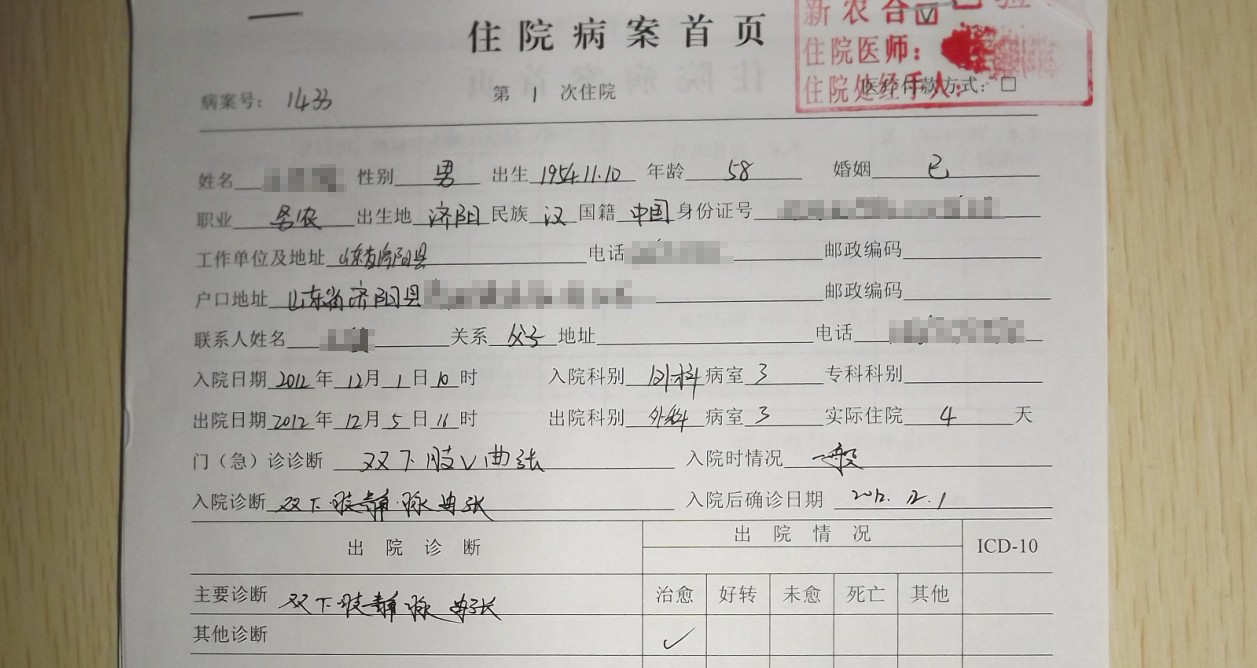 住院病案首页
新农合☑
住院医师：
住院处经手人：
医疗付款方式：□
病案号： 1433 第 1 次住院
姓名 性别 男 出生 1954.11.10 年龄 58 婚姻 已
职业 务农 出生地 济阳 民族 汉 国籍 中国 身份证号
工作单位及地址 山东省济阳县 电话 邮政编码
户口地址 山东省济阳县 邮政编码
联系人姓名 关系 父子 地址 电话
入院日期 2012 年 12 月 1 日 10 时 入院科别 外科 病室 3 专科科别
出院日期 2012 年 12 月 5 日 16 时 出院科别 外科 病室 3 实际住院 4 天
门（急）诊诊断 双下肢V曲张 入院时情况 一般
入院诊断 双下肢静脉曲张 入院后确诊日期 2012.12.1
出院诊断 出院情况 ICD-10
主要诊断 双下肢静脉曲张 治愈 好转 未愈 死亡 其他
其他诊断 ✓